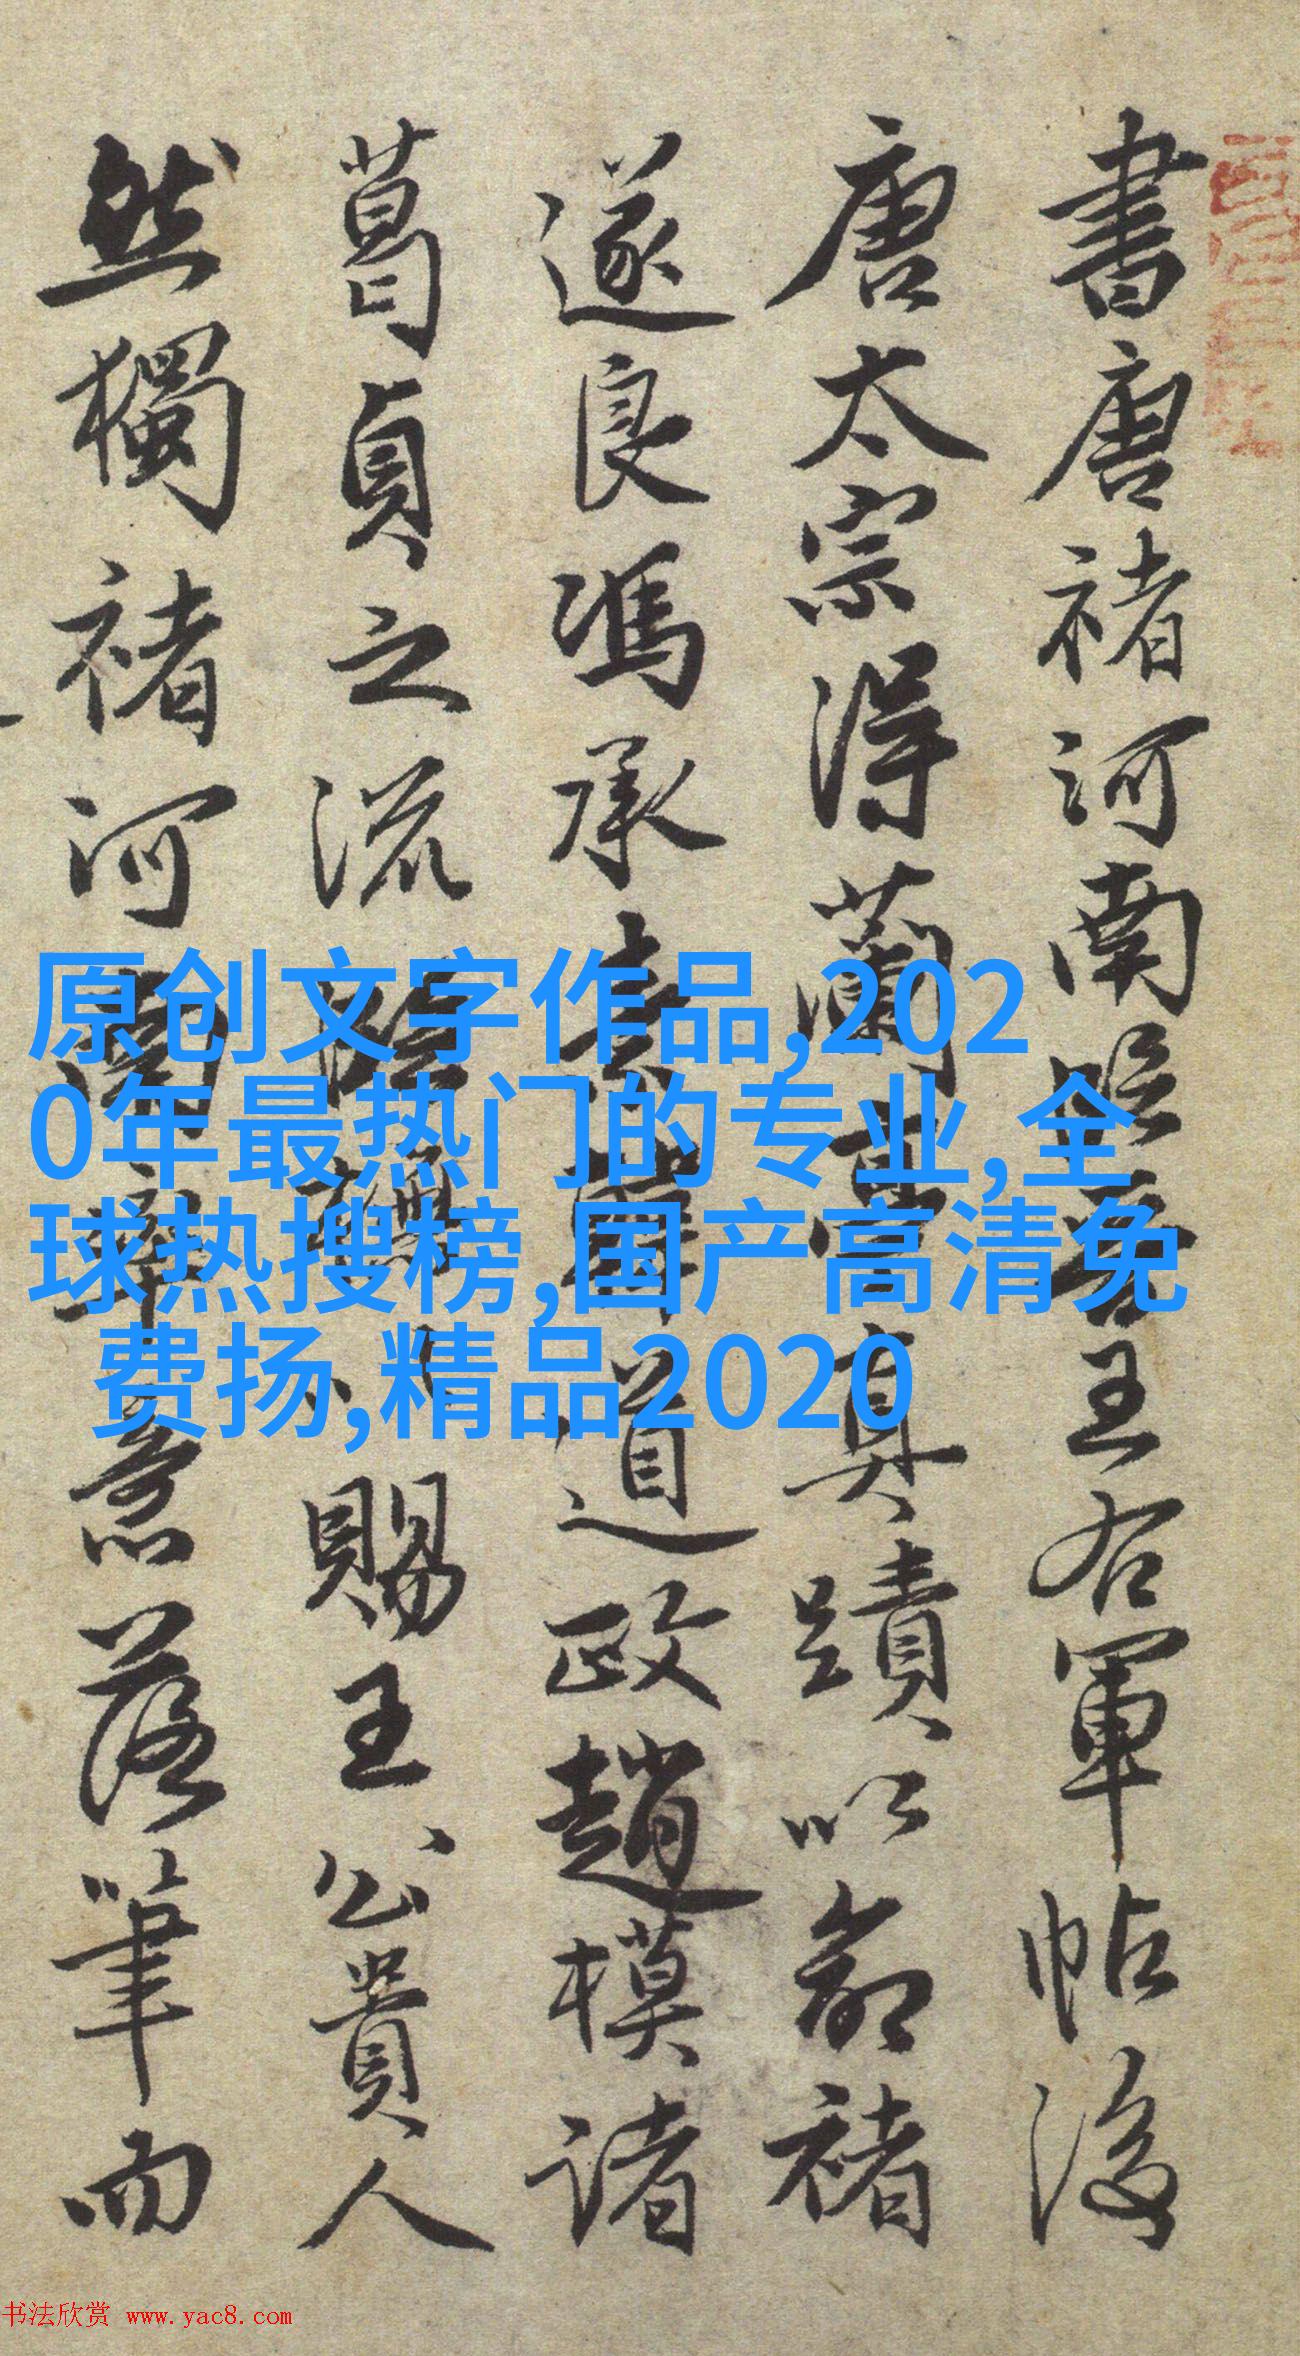 書唐褚河南臨晉王右軍帖後
唐太宗得蘭亭真蹟以命褚
遂良馮承素韓道政趙模諸
葛貞之流臨橅以賜王公貴人
然獨褚河南率意落筆而
原创文字作品,202
0年最热门的专业,全
球热搜榜,国产高清免
费扬,精品2020
书法欣赏 www.yac8.com